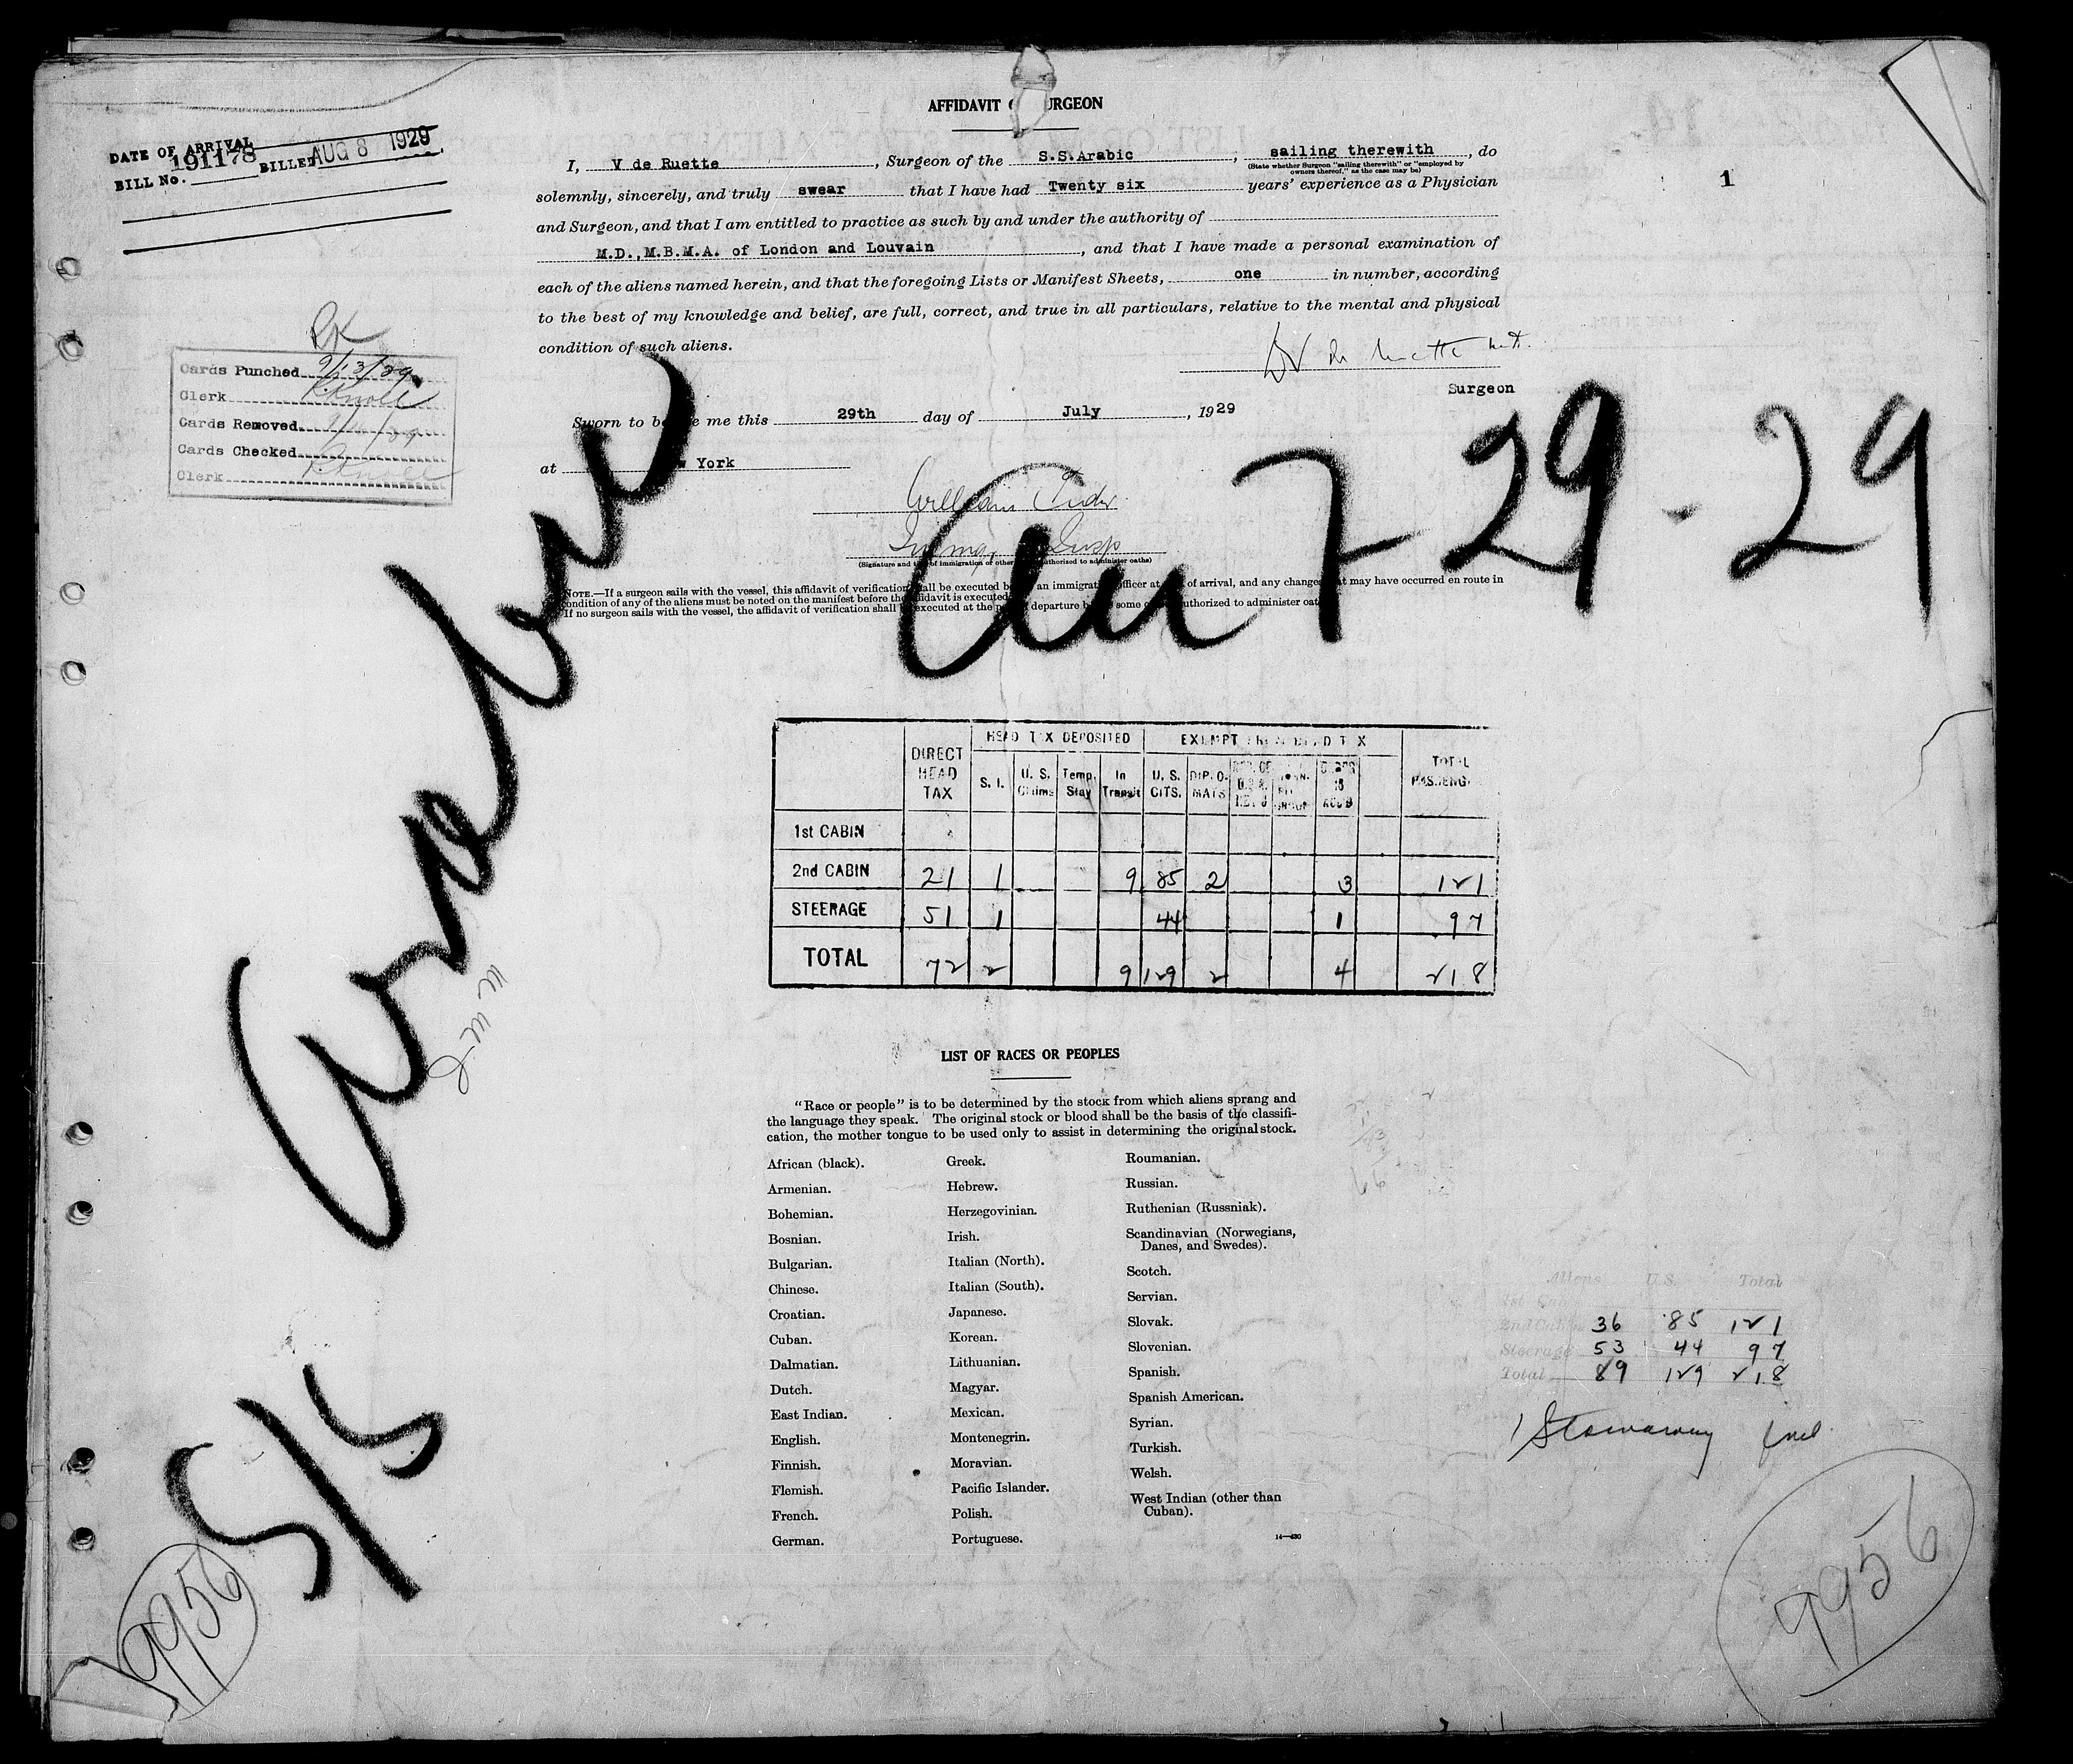 AFFIDAVIT O URGEON
DATE OF ARRIVAL
191178 BILLED AUG 8 1929
BILL No.
I, V de Ruette, Surgeon of the S.S.Arabic, sailing therewith, do
(State whether Surgeon "sailing therewith" or "employed by
owners thereof," as the case may be)
1
solemnly, sincerely, and truly swear that I have had Twenty six years' experience as a Physician
and Surgeon, and that I am entitled to practice as such by and under the authority of
M.D.,M.B.M.A. of London and Louvain, and that I have made a personal examination of
each of the aliens named herein, and that the foregoing Lists or Manifest Sheets, one in number, according
to the best of my knowledge and belief, are full, correct, and true in all particulars, relative to the mental and physical
condition of such aliens.
Surgeon
RK
Cards Punched 9/13/29
Clerk R Knoll
Cards Removed
Cards Checked
Clerk R. Knoll
Sworn to be e me this 29th day of July, 1929
at w York
William
Immg. Insp
(Signature and t of immigration or other uthorized to administer oaths)
Arr 7 29 - 29
NOTE.—If a surgeon sails with the vessel, this affidavit of verification shall be executed b an immigrati officer at of arrival, and any change t may have occurred en route in
condition of any of the aliens must be noted on the manifest before the affidavit is executed
If no surgeon sails with the vessel, the affidavit of verification shall be executed at the p departure b some o uthorized to administer oat
S/S Arabic
DIRECT HEAD TAX HEAD TAX DEPOSITED EXEMPT FROM HEAD TAX TOTAL PASSENG
S. I. U. S. Claims Temp. Stay In Transit U. S. CITS. DIPLO-MATS
1st CABIN
2nd CABIN 21 1 9 85 2 3 121
STEERAGE 51 1 44 1 97
TOTAL 72 2 9 129 2 4 218
LIST OF RACES OR PEOPLES
"Race or people" is to be determined by the stock from which aliens sprang and
the language they speak. The original stock or blood shall be the basis of the classifi-
cation, the mother tongue to be used only to assist in determining the original stock.
African (black).
Armenian.
Bohemian.
Bosnian.
Bulgarian.
Chinese.
Croatian.
Cuban.
Dalmatian.
Dutch.
East Indian.
English.
Finnish.
Flemish.
French.
German.
Greek.
Hebrew.
Herzegovinian.
Irish.
Italian (North).
Italian (South).
Japanese.
Korean.
Lithuanian.
Magyar.
Mexican.
Montenegrin.
Moravian.
Pacific Islander.
Polish.
Portuguese.
Roumanian.
Russian.
Ruthenian (Russniak).
Scandinavian (Norwegians,
Danes, and Swedes).
Scotch.
Servian.
Slovak.
Slovenian.
Spanish.
Spanish American.
Syrian.
Turkish.
Welsh.
West Indian (other than
Cuban).
14—430
Aliens U.S. Total
1st Cab
2nd Cab 36 85 121
Steerage 53 44 97
Total 89 129 218
1 Stowaway incl.
9956
9956